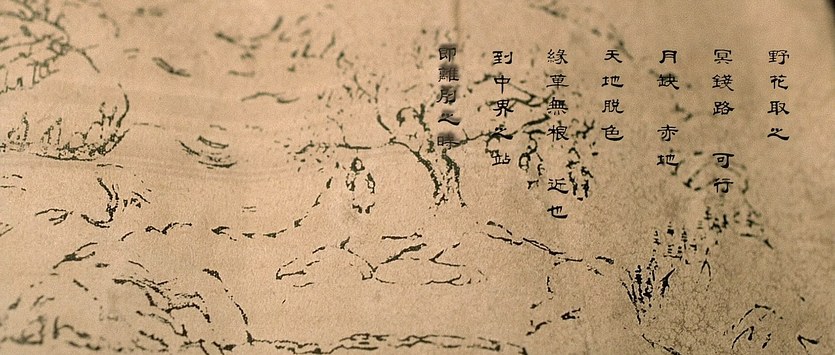 野花取之
冥錢路 可行
月缺 赤地
天地脫色
綠草無根 近也
到中界之站
即離別之時